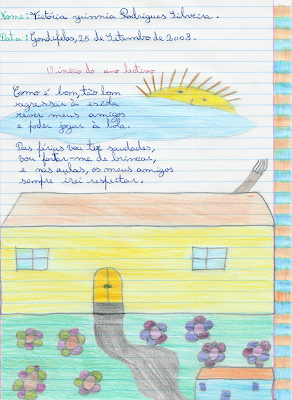 Nome: Victória yumnia Rodrigues Silveira.
Data: Gondifelos, 25 de Setembro de 2008.
O início do ano lectivo
Como é bom, tão bom
regressar à escola
rever meus amigos
e poder jogar à bola.
Das férias vou ter saudades,
vou fartar-me de brincar,
e nas aulas, os meus amigos
sempre irei respeitar.